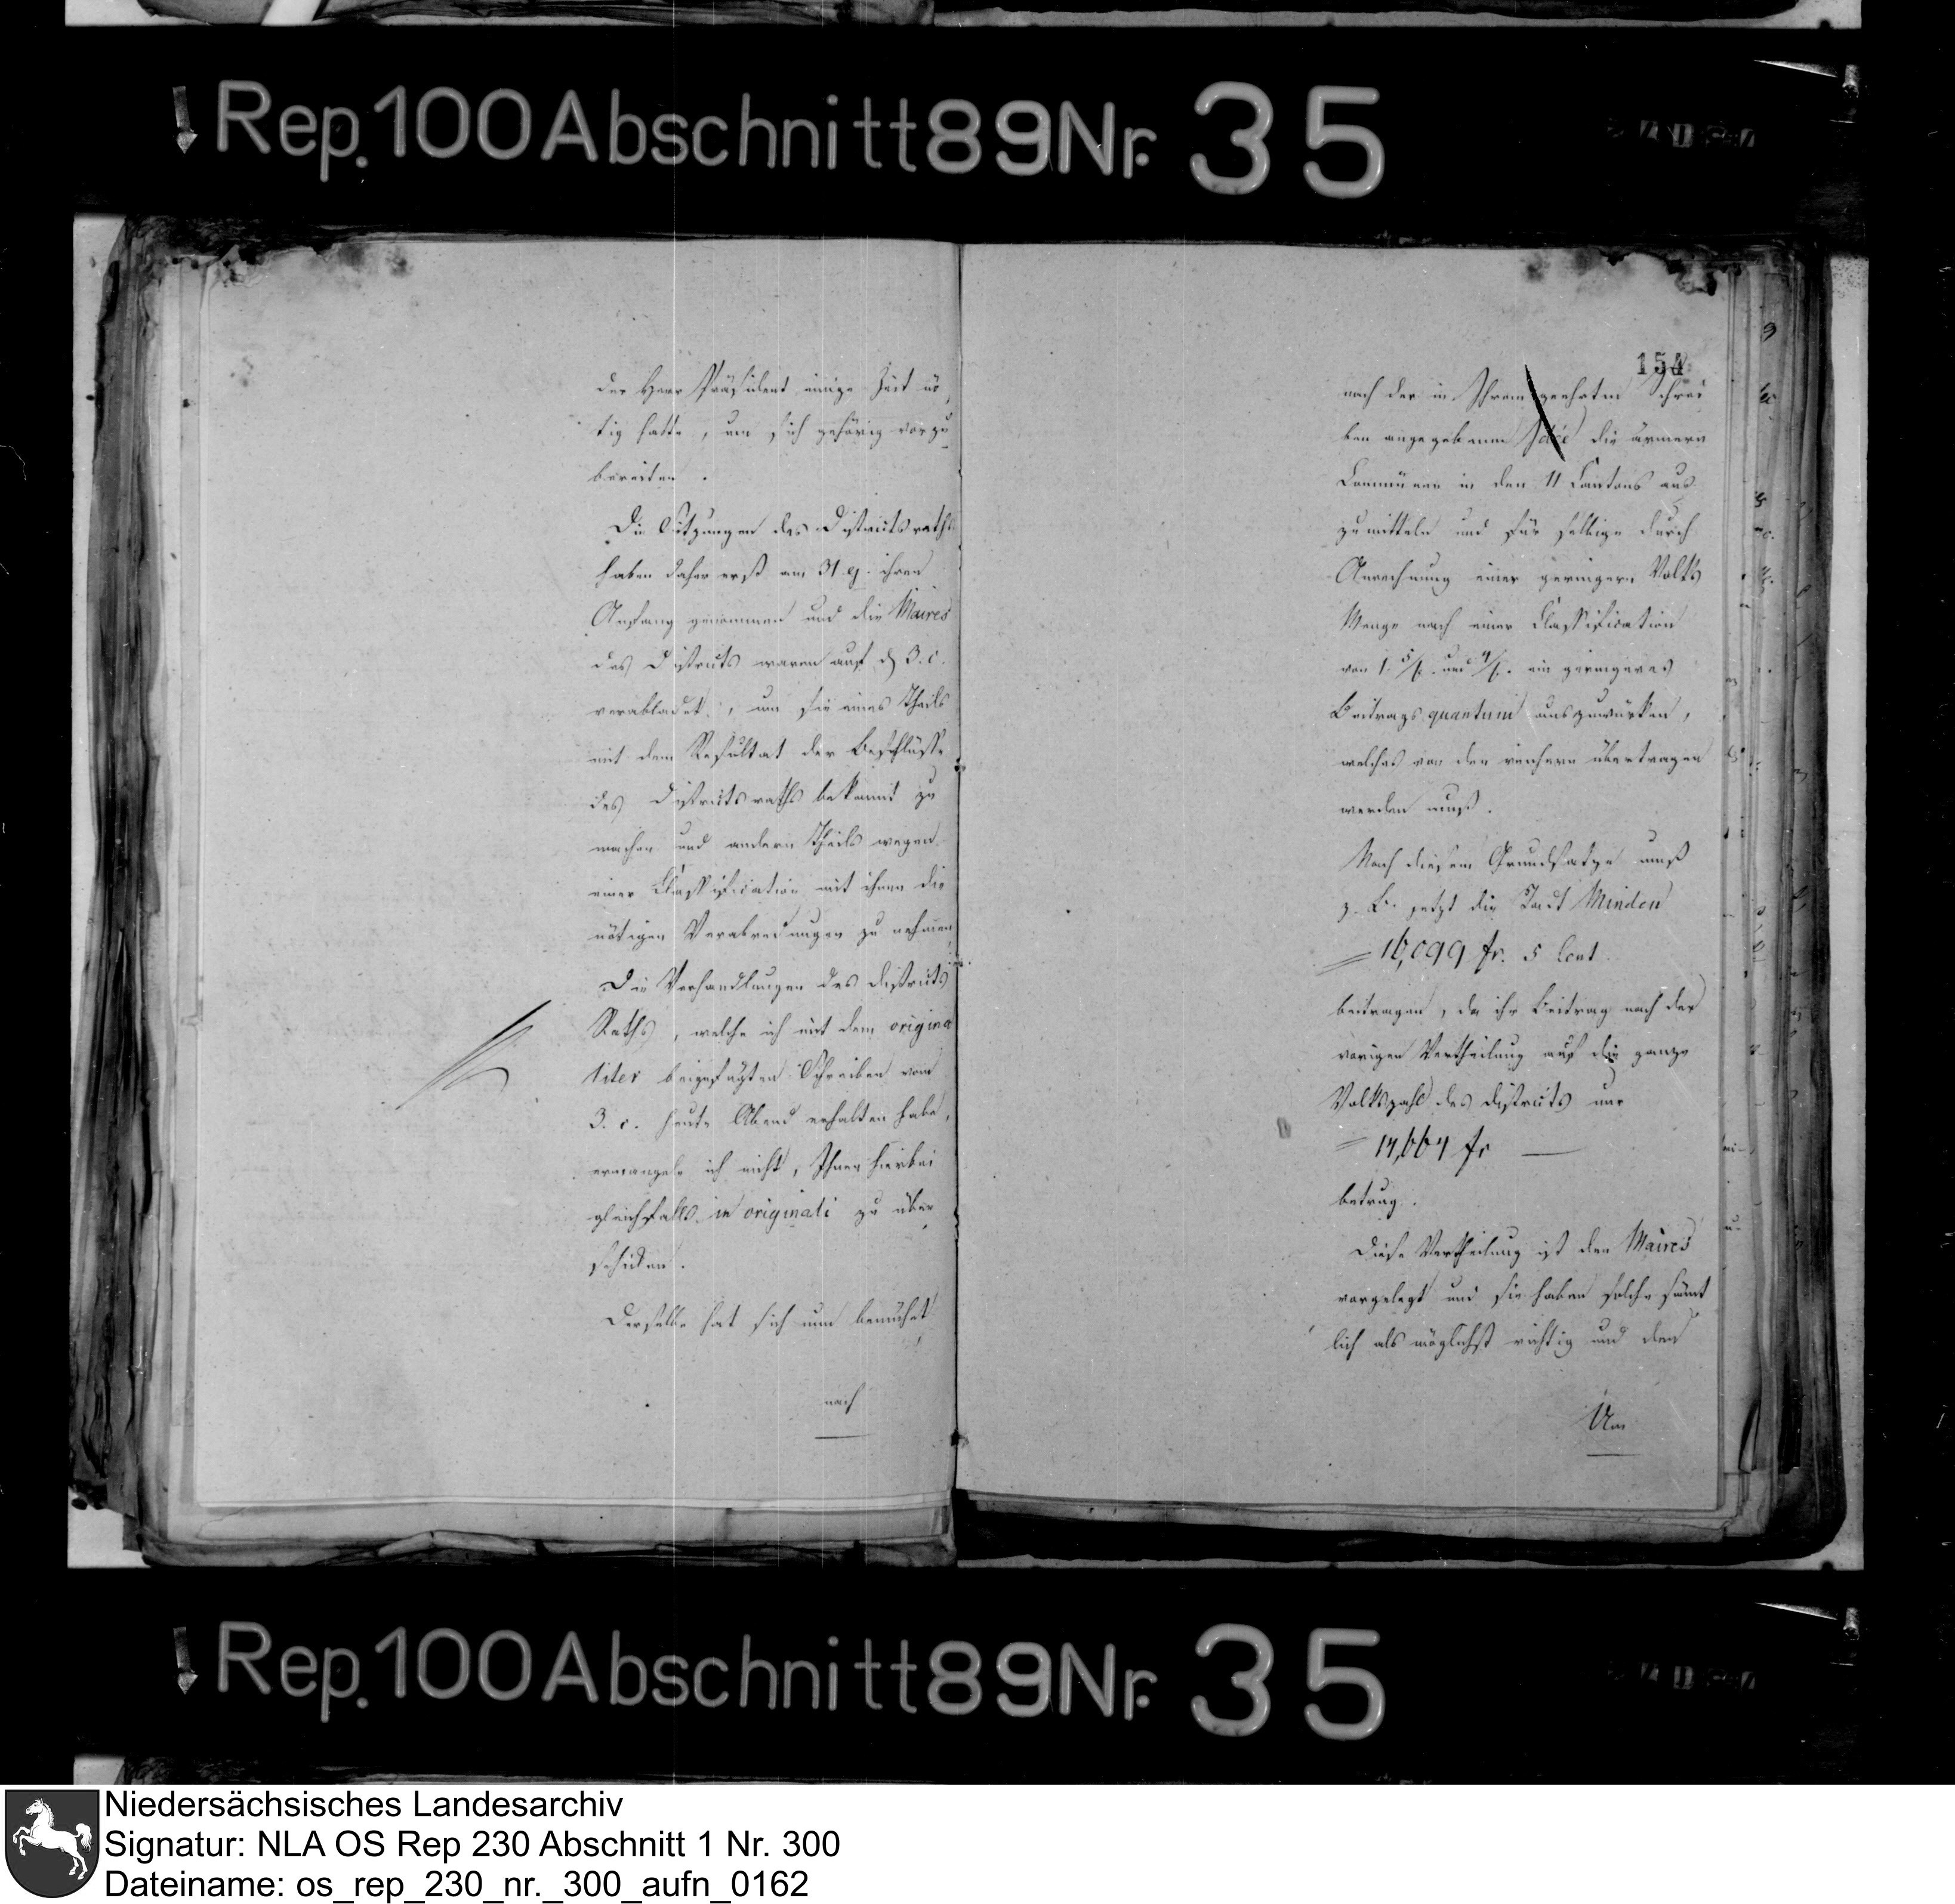 Rep. 100 Abschnitt 89 Nr. 35
der Herr Präsident einige Zeit nö
tig hatte, um sich gehörig vorzu
bereiten.
Die Sitzungen des Districtsraths
haben daher erst am 31 ej. ihren
Anfang genommen und die Maires
des Districts waren auf d 3. c.
verabladet, um sie eines Theils
mit dem Resultat der Beschlüsse
des Districtsraths bekannt zu
machen und andern Theils wegen
einer Classification mit ihnen die
nötigen Verabredungen zu nehmen.
Die Verhandlungen des Districts
Raths, welche ich mit dem origina
liter beigefügten Schreiben vom
3. c. heute Abend erhalten habe,
ermangele ich nicht, Ihnen hierbei
gleichfalls in originali zu über
schicken.
Derselbe hat sich nun bemühet
nach
154
nach der in Ihrem geehrten Schrei
ben angegebenen Idée die ärmern
Communen in den 11 Cantons aus
zumitteln und für selbige durch
Anrechnung einer geringern Volks
Menge nach einer Classification
von 1. 5/6. und 4/6. ein geringeres
Beitrags quantum auszuwürken,
welches von den reichern übertragen
werden muß.
Nach diesem Grundsatze muß
z. B. jetzt die Stadt Minden
= 16,099 fr. 5 Cent.
beitragen, da ihr Beitrag nach der
vorigen Vertheilung auf die ganze
Volkszahl des Districts nur
= 14,664 fr —
betrug.
Diese Vertheilung ist den Maires
vorgelegt und sie haben solche sämt
lich als möglichst richtig und den
Um
Rep. 100 Abschnitt 89 Nr. 35
Niedersächsisches Landesarchiv
Signatur: NLA OS Rep 230 Abschnitt 1 Nr. 300
Dateiname: os_rep_230_nr._300_aufn_0162